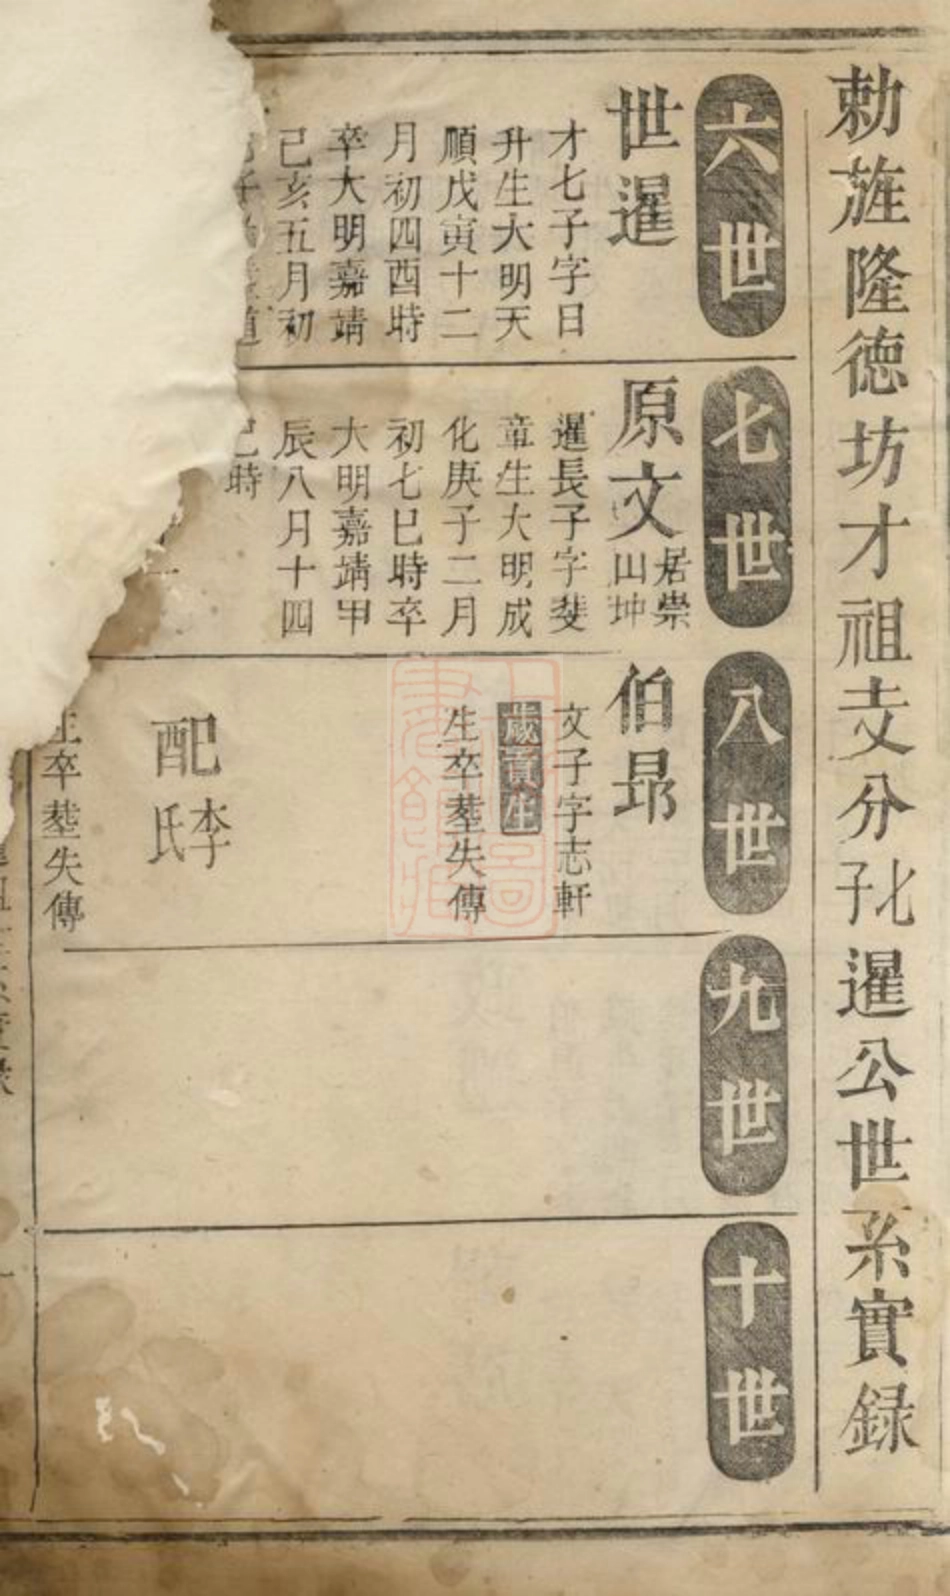 勅旌隆德坊才祖支分孔暹公世系實録
六世
世暹
才七子字日
升生大明天
順戊寅十二
月初四酉時
卒大明嘉靖
己亥五月初
七世
原文
居崇
山坤
暹長子字斐
章生大明成
化庚子二月
初七巳時卒
大明嘉靖甲
辰八月十四
巳時
八世
伯昂
文子字志軒
歲貢生
生卒塟失傳
配李氏
生卒塟失傳
九世
十世